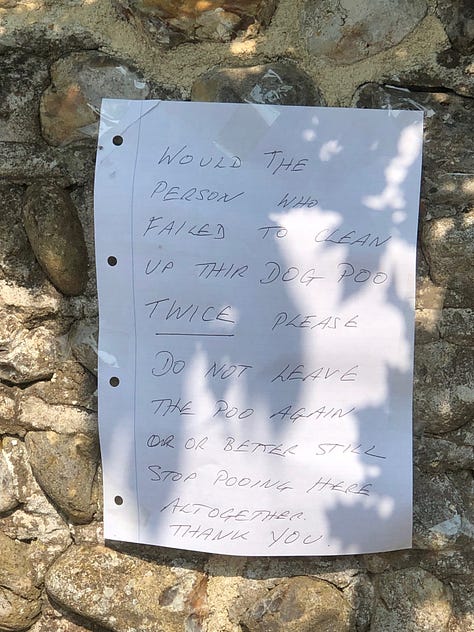 WOULD THE
PERSON WHO
FAILED TO CLEAN
UP THIR DOG POO
TWICE PLEASE
DO NOT LEAVE
THE POO AGAIN
OR OR BETTER STILL
STOP POOING HERE
ALTOGETHER.
THANK YOU.